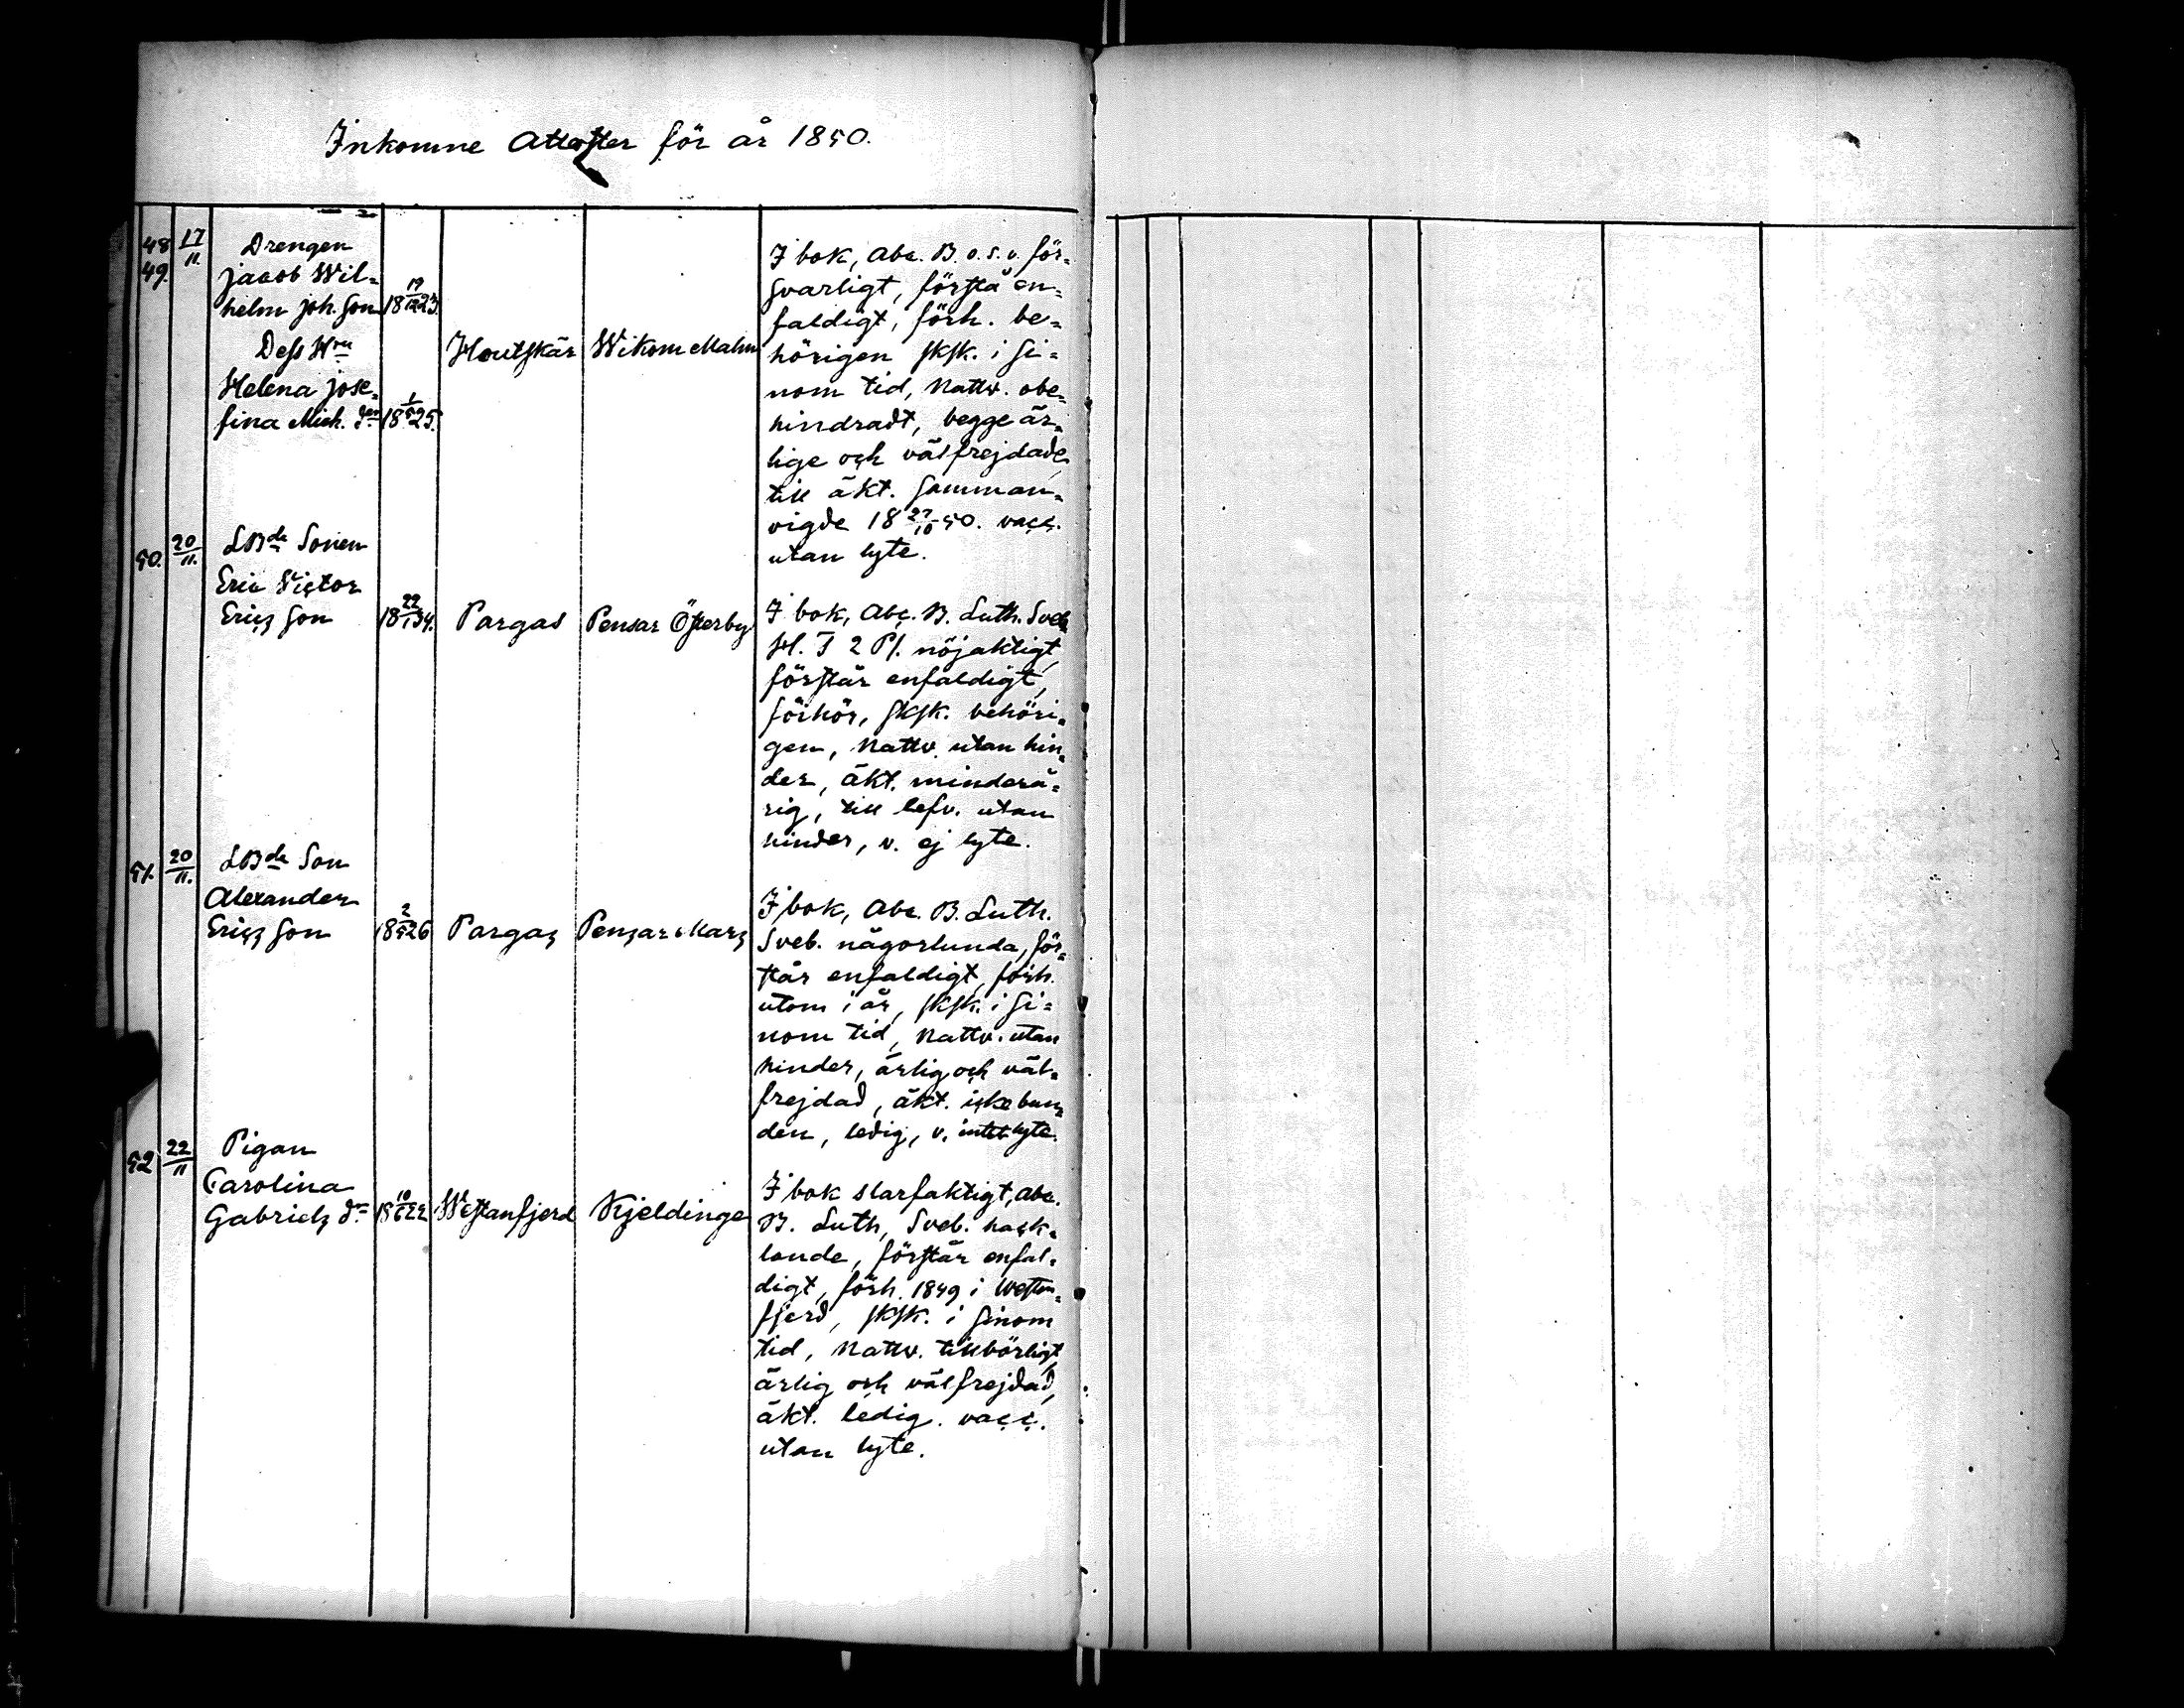 Inkomne Attester för år 1850.
48 17/11 Drengen
49. Jacob Wil=
helm Joh. Son 18 19/12 23.
Dess Hru
Helena Jose=
fina Mich. dr 18 1/5 25.
Houtskär Wikom Malm
I bok, Abc. B. o.s.v. för=
svarligt, förstå en=
faldigt, förh. be=
hörigen sksk. i si=
nom tid, Nattv. obe=
hindradt, begge är=
lige och välfrejdade,
till äkt. samman=
vigde 18 27/10 50. vacc.
utan lyte.
50. 20/11. LBde Sonen
Eric Victor
Erics Son 18 22/1 34. Pargas Pensar Österby
I bok, Abc. B. Luth. Sveb.
H. T 2 Ps. nöjaktigt,
förstår enfaldigt,
förhör, sksk. behöri=
gen, Nattv. utan hin=
der, äkt. minderå=
rig, till lefv. utan
hinder, v. ej lyte.
51. 20/11. LBde Son
Alexander
Erics Son 18 2/5 26 Pargas Pensar Mars
I bok, Abc. B. Luth.
Sveb. någorlunda, för=
står enfaldigt, förh.
utom i år, sksk. i si=
nom tid, Nattv. utan
hinder, ärlig och väl=
frejdad, äkt. icke bun=
den, ledig, v. intet lyte.
52 22/11 Pigan
Carolina
Gabriels dr 18 10/6 22 Westanfjerd Kjeldinge
I bok slarfaktigt, Abc.
B. Luth, Sveb. hack=
lande, förstår enfal=
digt, förh. 1849 i Westan=
fjerd, sksk. i sinom
tid, Nattv. tillbörligt,
ärlig och välfrejdad,
äkt. ledig. vacc.
utan lyte.